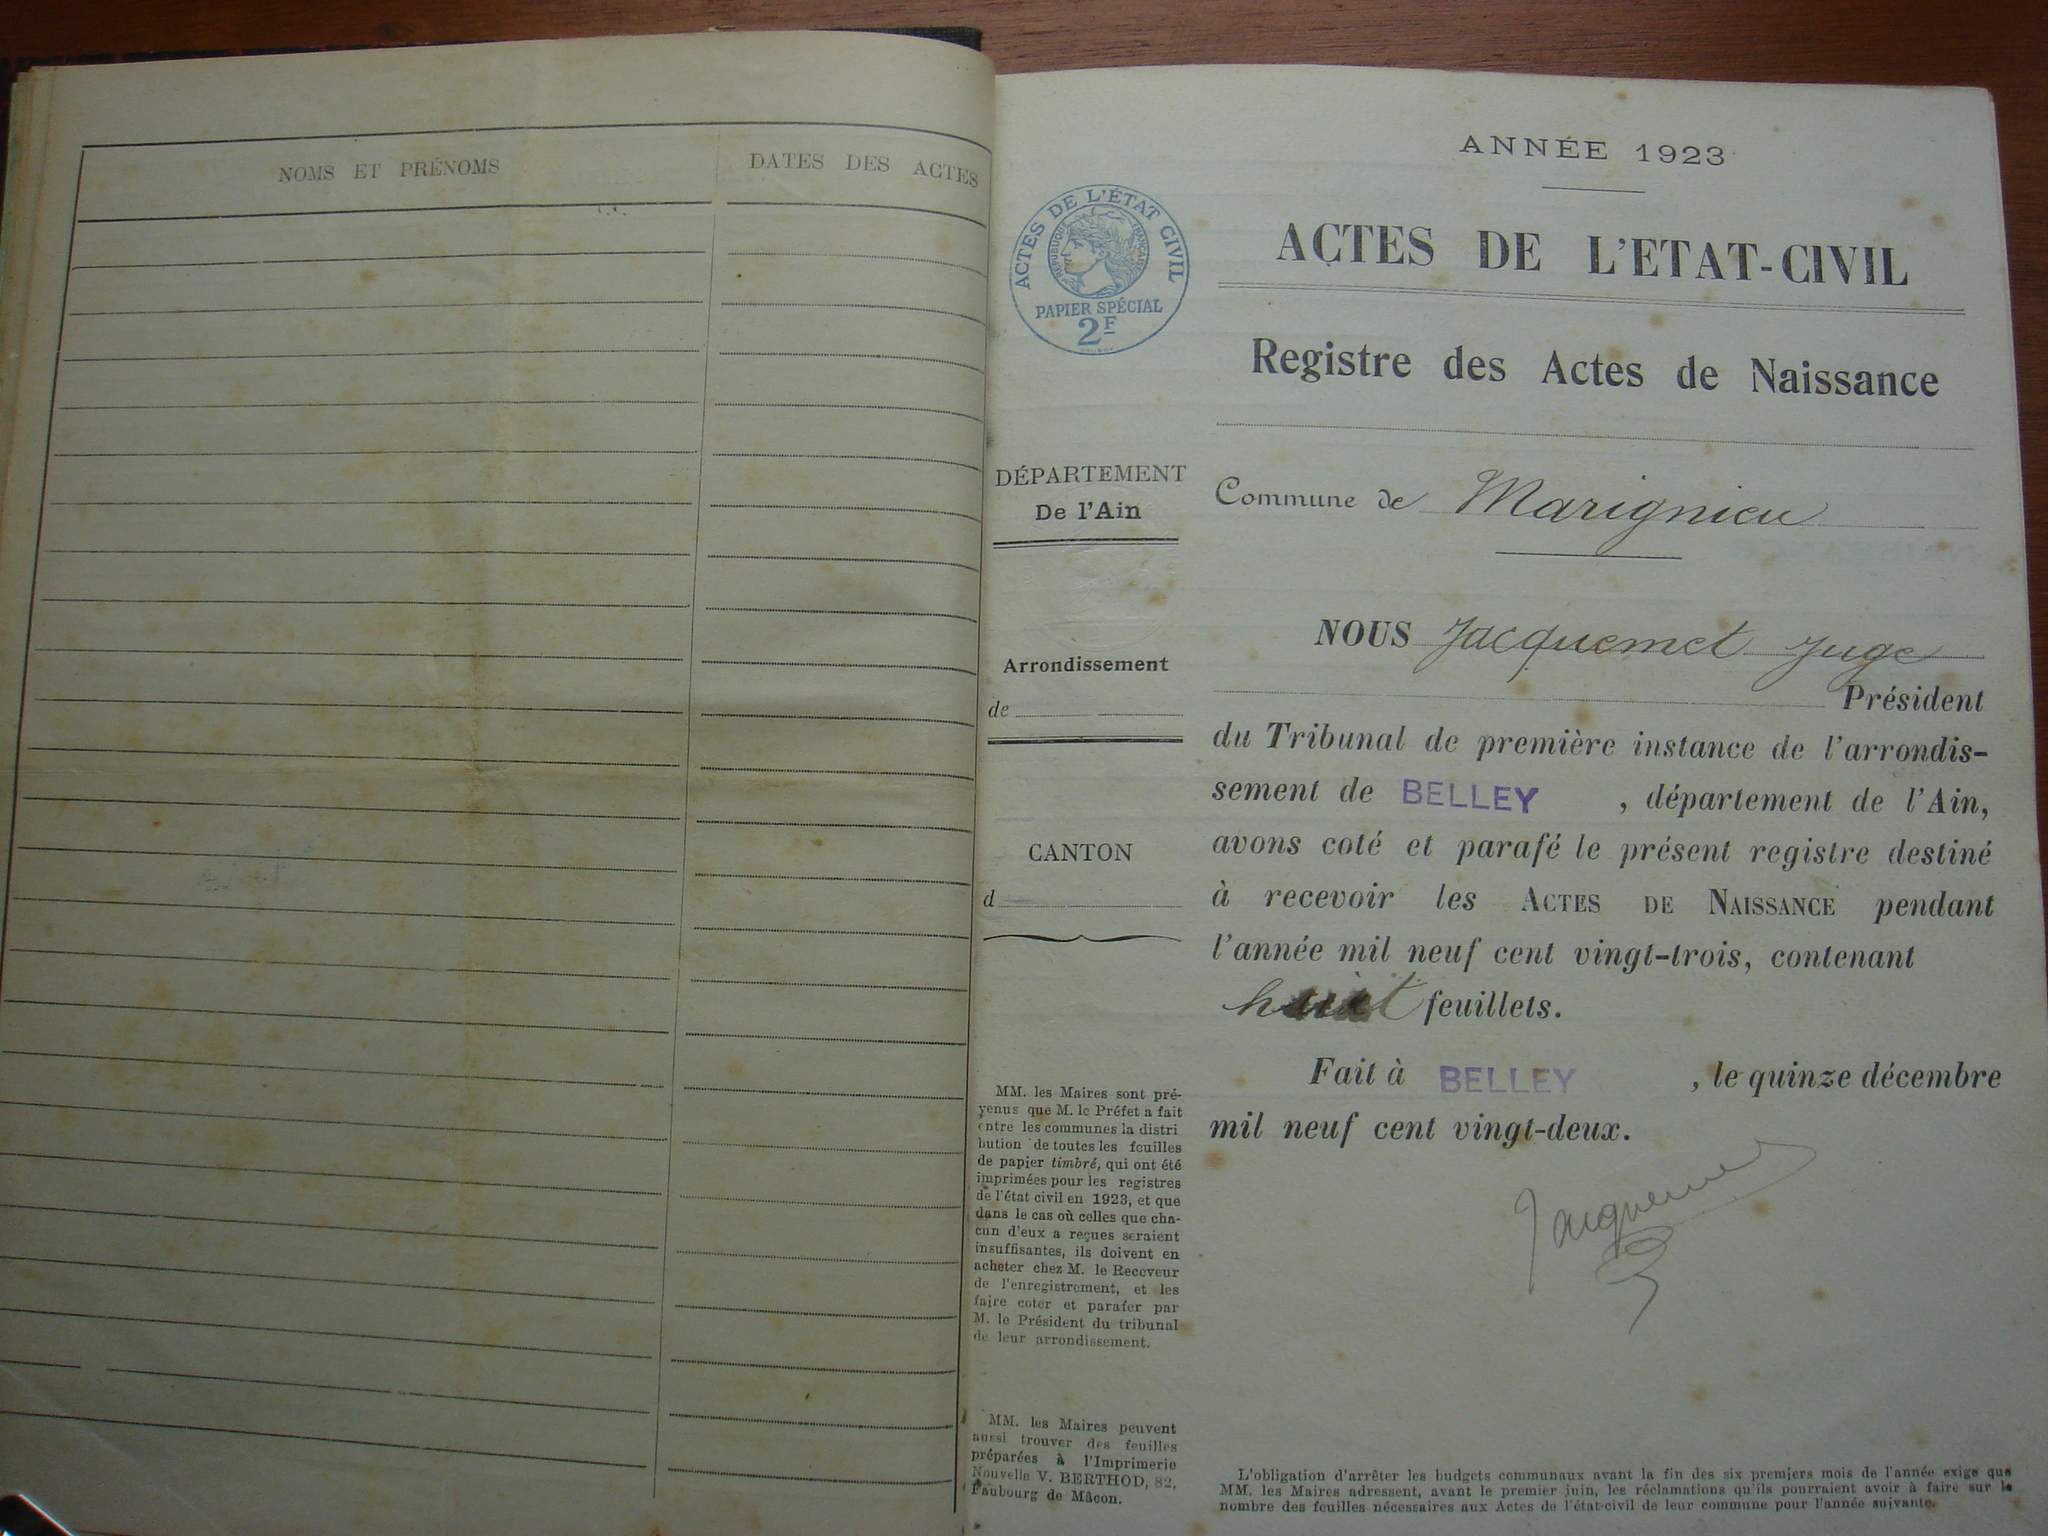 NOMS ET PRÉNOMS
DATES DES ACTES
ACTES DE L'ÉTAT CIVIL
RÉPUBLIQUE FRANÇAISE
PAPIER SPÉCIAL
2F
DÉPARTEMENT
De l'Ain
Arrondissement
de
CANTON
d
MM. les Maires sont pré-
venus que M. le Préfet a fait
entre les communes la distri
bution de toutes les feuilles
de papier timbré, qui ont été
imprimées pour les registres
de l'état civil en 1923, et que
dans le cas où celles que cha-
cun d'eux a reçues seraient
insuffisantes, ils doivent en
acheter chez M. le Receveur
de l'enregistrement, et les
faire coter et parafer par
M. le Président du tribunal
de leur arrondissement.
MM. les Maires peuvent
aussi trouver des feuilles
préparées à l'Imprimerie
Nouvelle V. BERTHOD, 82,
Faubourg de Mâcon.
ANNÉE 1923
ACTES DE L'ETAT-CIVIL
Registre des Actes de Naissance
Commune de Marignieu
NOUS Jacquemet Juge
Président
du Tribunal de première instance de l'arrondis-
sement de BELLEY , département de l'Ain,
avons coté et parafé le présent registre destiné
à recevoir les ACTES DE NAISSANCE pendant
l'année mil neuf cent vingt-trois, contenant
huit feuillets.
Fait à BELLEY , le quinze décembre
mil neuf cent vingt-deux.
Jacquemet
L'obligation d'arrêter les budgets communaux avant la fin des six premiers mois de l'année exige que
MM. les Maires adressent, avant le premier juin, les réclamations qu'ils pourraient avoir à faire sur le
nombre des feuilles nécessaires aux Actes de l'état-civil de leur commune pour l'année suivante.